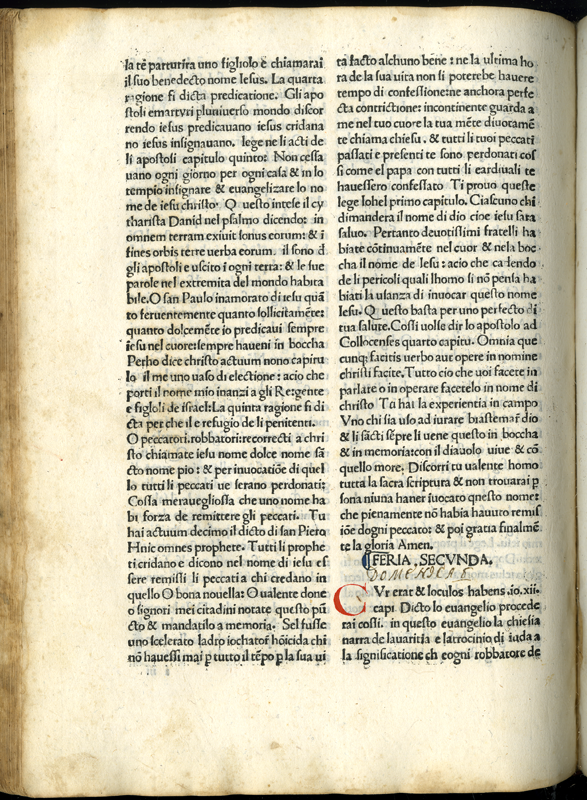 la tē parturira uno figliolo e chiamarai
il suo benedecto nome Iesus. La quarta
ragione si dicta predicatione. Gli apo
stoli emartyri pluniuerso mondo discor
rendo iesus predicauano iesus cridana
no iesus insignauano. lege ne li acti de
li apostoli capitulo quinto: Non cessa
uano ogni giorno per ogni casa & in lo
tempio insignare & euangelizare lo no
me de iesu christo. Q uesto intese il cy
tharista Dauid nel psalmo dicendo: in
omnem terram exiuit sonus eorum: & i
fines orbis terre uerba eorum. il sono d
gli apostoli e uscito i ogni terra: & le sue
parole nel extremita del mondo habita
bile. O san Paulo inamorato di iesu quā
to feruentemente quanto sollicitamēte:
quanto dolcemēte io predicaui sempre
iesu nel cuore: sempre haueui in boccha
Perho dice christo actuum nono capitu
lo il me uno uaso di electione: acio che
porti il nome mio inanzi a gli Re: gente
e figloli de israel: La quinta ragione si di
cta per che il e refugio de li penitenti.
O peccatori. robbatori: recorrecti a chri
sto chiamate iesu nome dolce nome sā
cto nome pio: & per inuocatiōe di quel
lo tutti li peccati ue serano perdonati:
Cossa merauegliossa che uno nome ha
bi forza de remittere gli peccati. Tu
hai actuum decimo il dicto di san Piero
Hnic omnes prophete. Tutti li prophe
ti cridano e dicono nel nome di iesu es
sere remissi li peccati a chi credano in
quello O bona nouella: O ualente done
o signori mei citadini notate questo pū
cto & mandatilo a memoria. Sel fusse
uno scelerato ladro iochator hōicida chi
nō hauessi mai p tutto il tēpo p la sua ui
ta facto alchuno bene: ne la ultima ho
ra de la sua uita non si poterebe hauere
tempo di confessione: ne anchora perfe
cta contrictione: incontinente guarda a
me nel tuo cuore la tua mēte diuotamē
te chiama chiesu. & tutti li tuoi peccati
passati e presenti te sono perdonati cos
si come el papa con tutti li cardinali te
hauessero confessato Ti prouo queste
lege Iohel primo capitulo. Ciascuno chi
dimandera il nome di dio cioe iesu sara
saluo. Pertanto deuotissimi fratelli ha
biate cōtinuamēte nel cuor & ne la boc
cha il nome de Iesu: acio che cadendo
de li pericoli quali lhomo si nō pensa ha
biati la usanza di inuocar questo nome
Iesu. Q uesto basta per uno perfecto di
tua salute. Cossi uolse dir lo apostolo ad
Collocenses quarto capitu. Omnia que
cunq; facitis uerbo aut opere in nomine
christi facite. Tutto cio che uoi facete in
parlare o in operare facetelo in nome di
christo Tu hai la experientia in campo
Vno chi sia uso ad iurare biastemar dio
& li sācti sēpre li uene questo in boccha
& in memoria: con il diauolo uiue & cō
quello more: Discorri tu ualente homo
tutta la sacra scriptura & non trouarai p
sona niuna hauer iuocato questo nome:
che pienamente nō habia hauuto remis
siōe dogni peccato: & poi gratia finalmē
te la gloria Amen.
FERIA. SECVNDA.
DOMENICA 6
C Vr erat & loculos habens. io. xii.
capi Dicto lo euangelio procede
rai cossi. in questo euangelio la chiesia
narra de lauaritia e latrocinio di iuda a
la significatione ch eogni robbatore de